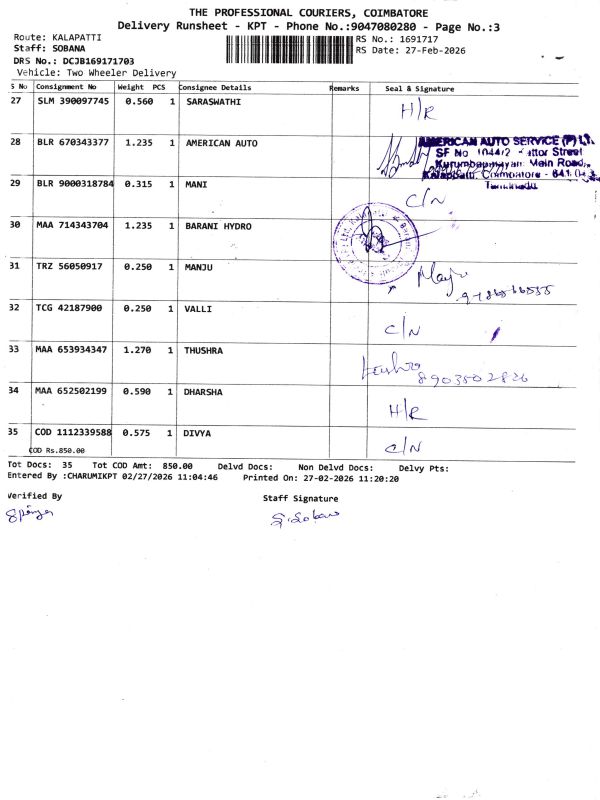 THE PROFESSIONAL COURIERS, COIMBATORE
Delivery Runsheet - KPT - Phone No.:9047080280 - Page No.:3
Route: KALAPATTI
RS No.: 1691717
Staff: SOBANA
RS Date: 27-Feb-2026
DRS No.: DCJB169171703
Vehicle: Two Wheeler Delivery
S No Consignment No Weight PCS Consignee Details Remarks Seal & Signature
27 SLM 390097745 0.560 1 SARASWATHI H/R
28 BLR 670343377 1.235 1 AMERICAN AUTO
AMERICAN AUTO SERVICE (P)
SF No
Street
Main Road,
Coimbatore -
Tamilnadu
29 BLR 9000318784 0.315 1 MANI C/N
30 MAA 714343704 1.235 1 BARANI HYDRO
31 TRZ 56050917 0.250 1 MANJU
32 TCG 42187900 0.250 1 VALLI C/N
33 MAA 653934347 1.270 1 THUSHRA
34 MAA 652502199 0.590 1 DHARSHA H/R
35 COD 1112339588 0.575 1 DIVYA C/N
COD Rs.850.00
Tot Docs: 35 Tot COD Amt: 850.00 Delvd Docs: Non Delvd Docs: Delvy Pts:
Entered By :CHARUMIKPT 02/27/2026 11:04:46 Printed On: 27-02-2026 11:20:20
Verified By Staff Signature